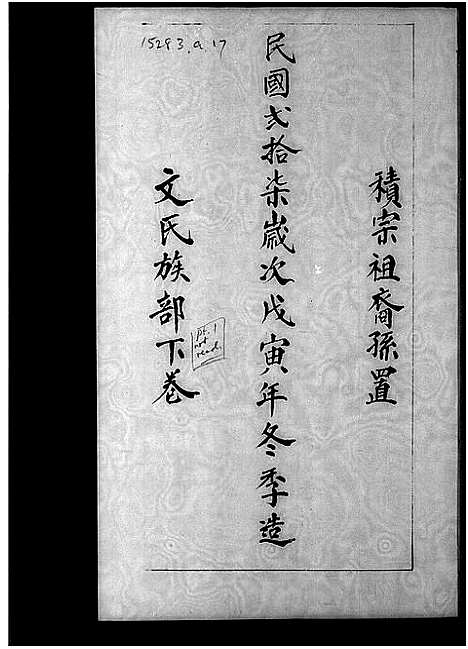 15293.a.17
積宗祖裔孫置
民國弍拾柒歲次戊寅年冬季造
文氏族部下卷
pt. 1
not
recd.